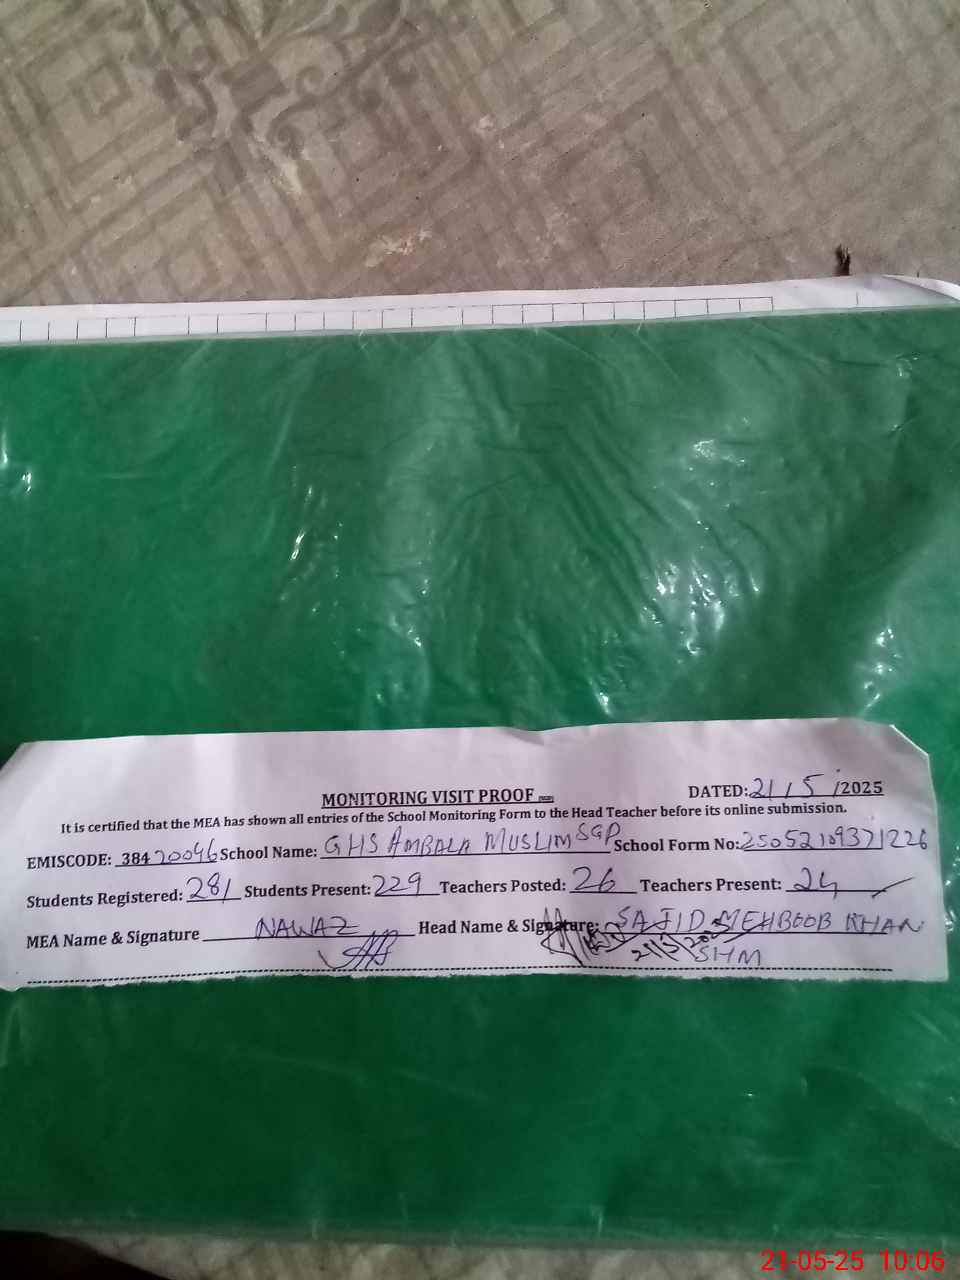 MONITORING VISIT PROOF
DATED: 21/5/2025
It is certified that the MEA has shown all entries of the School Monitoring Form to the Head Teacher before its online submission.
EMISCODE: 38420046 School Name: GHS AMBALA MUSLIM SGP School Form No: 25052109371226
Students Registered: 281 Students Present: 229 Teachers Posted: 26 Teachers Present: 24
MEA Name & Signature NAWAZ Head Name & Signature: SAJID MEHBOOB KHAN
21/5/2025 SHM
21-05-25 10:06